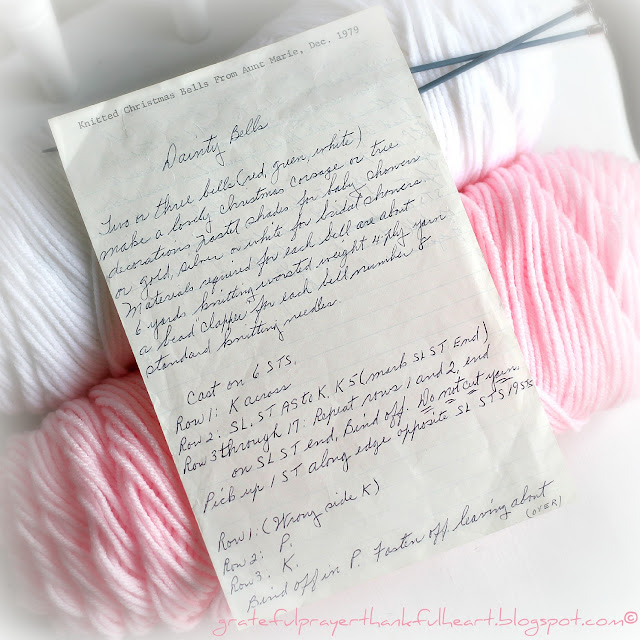 Knitted Christmas Bells From Aunt Marie, Dec. 1979
Dainty Bells
Two or three bells (red, green, white)
make a lovely Christmas corsage or tree
decorations, pastel shades for baby showers
or gold, silver or white for bridal showers.
Materials required for each bell are about
6 yards knitting worsted weight 4 ply yarn
a bead "clapper" for each bell number 8
standard knitting needles.
Cast on 6 STS.
Row 1: K across
Row 2: SL. ST AS to K. K 5 (mark SL ST End)
Row 3 through 17: Repeat rows 1 and 2, end
on SL ST end, Bind off. Do not cut yarn.
Pick up 1 ST along edge opposite SL STS 19 STS.
Row 1: (Wrong side K)
Row 2: P.
Row 3: K.
Bind off in P. Fasten off leaving about
(OVER)
gratefulprayerthankfulheart.blogspot.com©